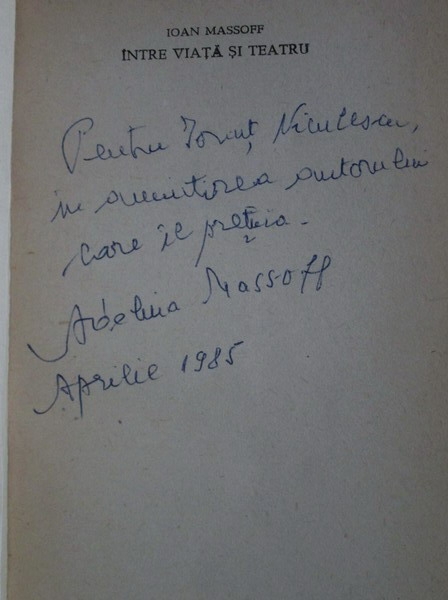 IOAN MASSOFF
ÎNTRE VIAȚĂ ȘI TEATRU
Pentru Ionuț Niculescu,
în amintirea autorului
care îl prețuia.
Adelina Massoff
Aprilie 1985